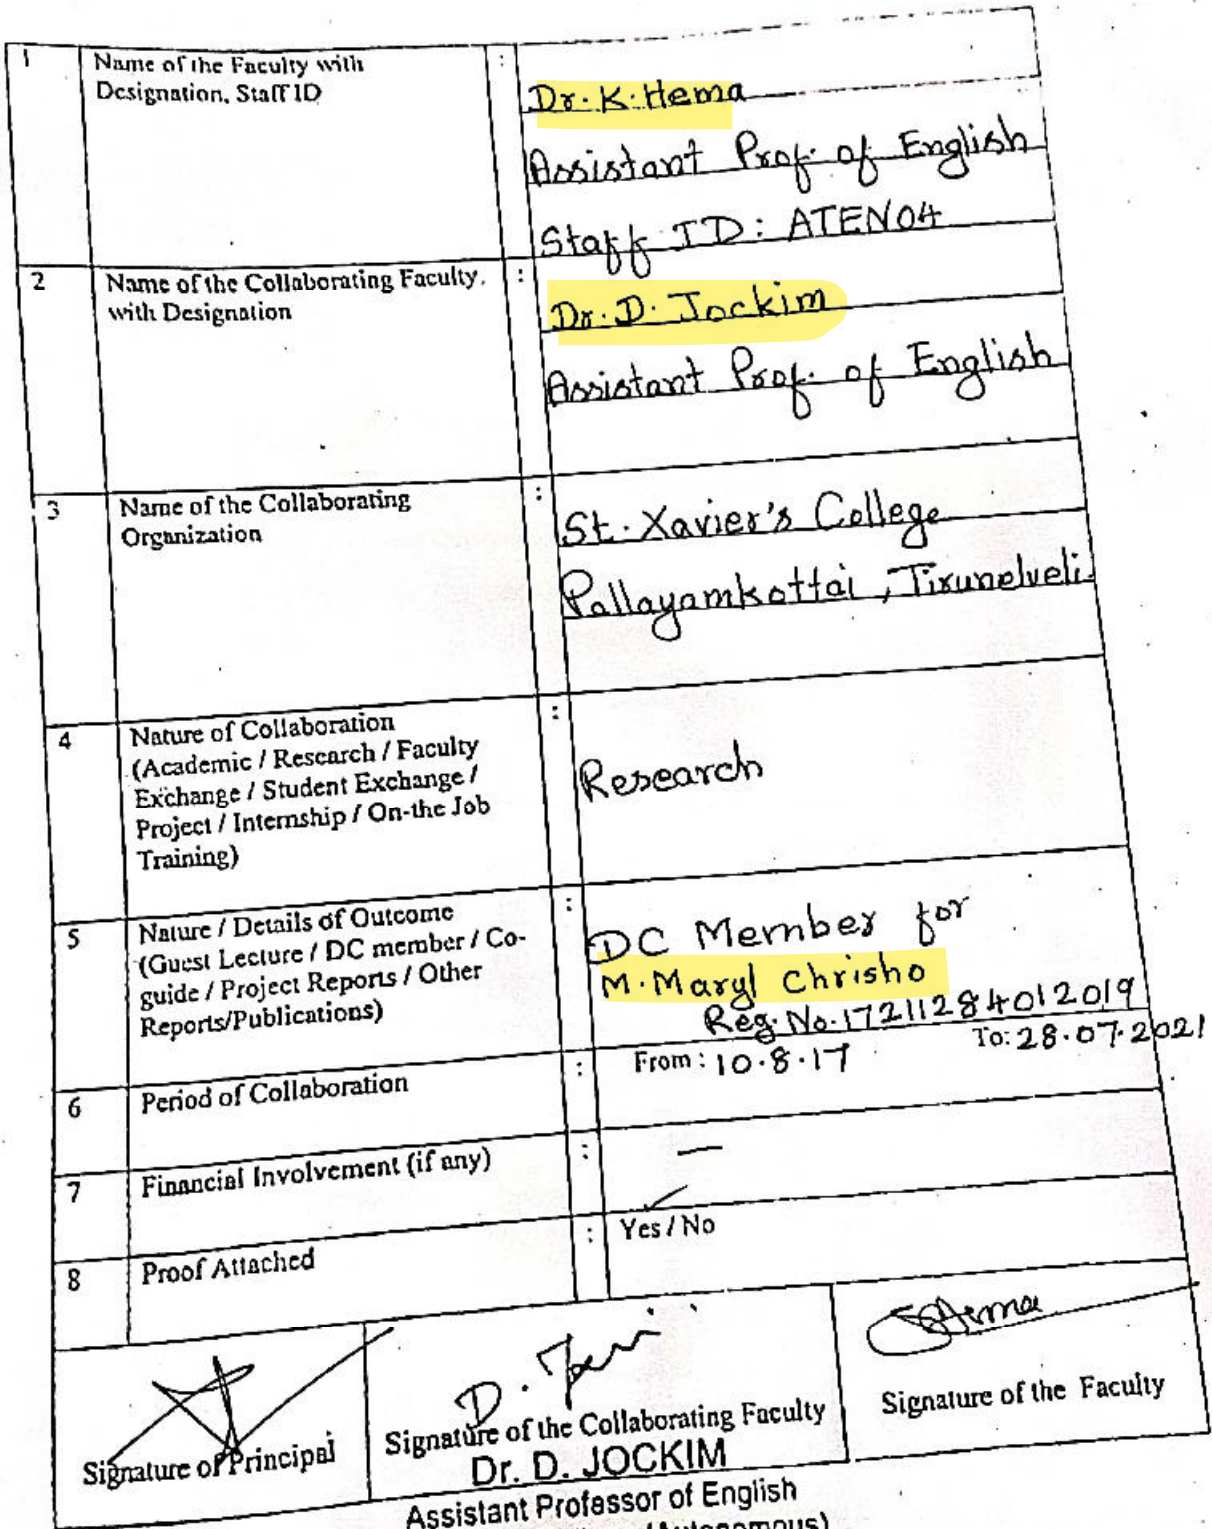 1
Name of the Faculty with
Designation, Staff ID
:
Dr. K. Hema
Assistant Prof. of English
Staff ID: ATEN04
2
Name of the Collaborating Faculty,
with Designation
:
Dr. D. Jockim
Assistant Prof. of English
3
Name of the Collaborating
Organization
:
St. Xavier's College
Pallayamkottai, Tirunelveli.
4
Nature of Collaboration
(Academic / Research / Faculty
Exchange / Student Exchange /
Project / Internship / On-the Job
Training)
:
Research
5
Nature / Details of Outcome
(Guest Lecture / DC member / Co-
guide / Project Reports / Other
Reports/Publications)
:
DC Member for
M. Maryl Chrisho
Reg. No. 17211284012019
6
Period of Collaboration
:
From: 10.8.17 To: 28.07.2021
7
Financial Involvement (if any)
:
—
8
Proof Attached
:
Yes / No
Signature of Principal
D.
Signature of the Collaborating Faculty
Dr. D. JOCKIM
Assistant Professor of English
(Autonomous)
Hema
Signature of the Faculty